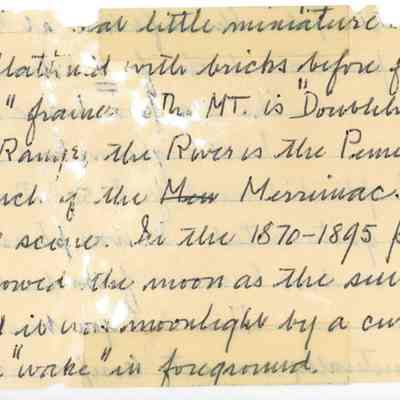 little miniature
with bricks before
" frame. The MT. is "Doubleh
Range, the River is the Pemi
of the Mew Merrimac.
scene. In the 1870-1895
owed the moon as the su
it was moonlight by a cu
"wake" in foreground.